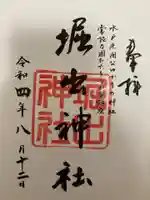 奉拝
水戸光圀公ゆかりの神社
堀出神社
堀出
神社
令和四年八月十二日